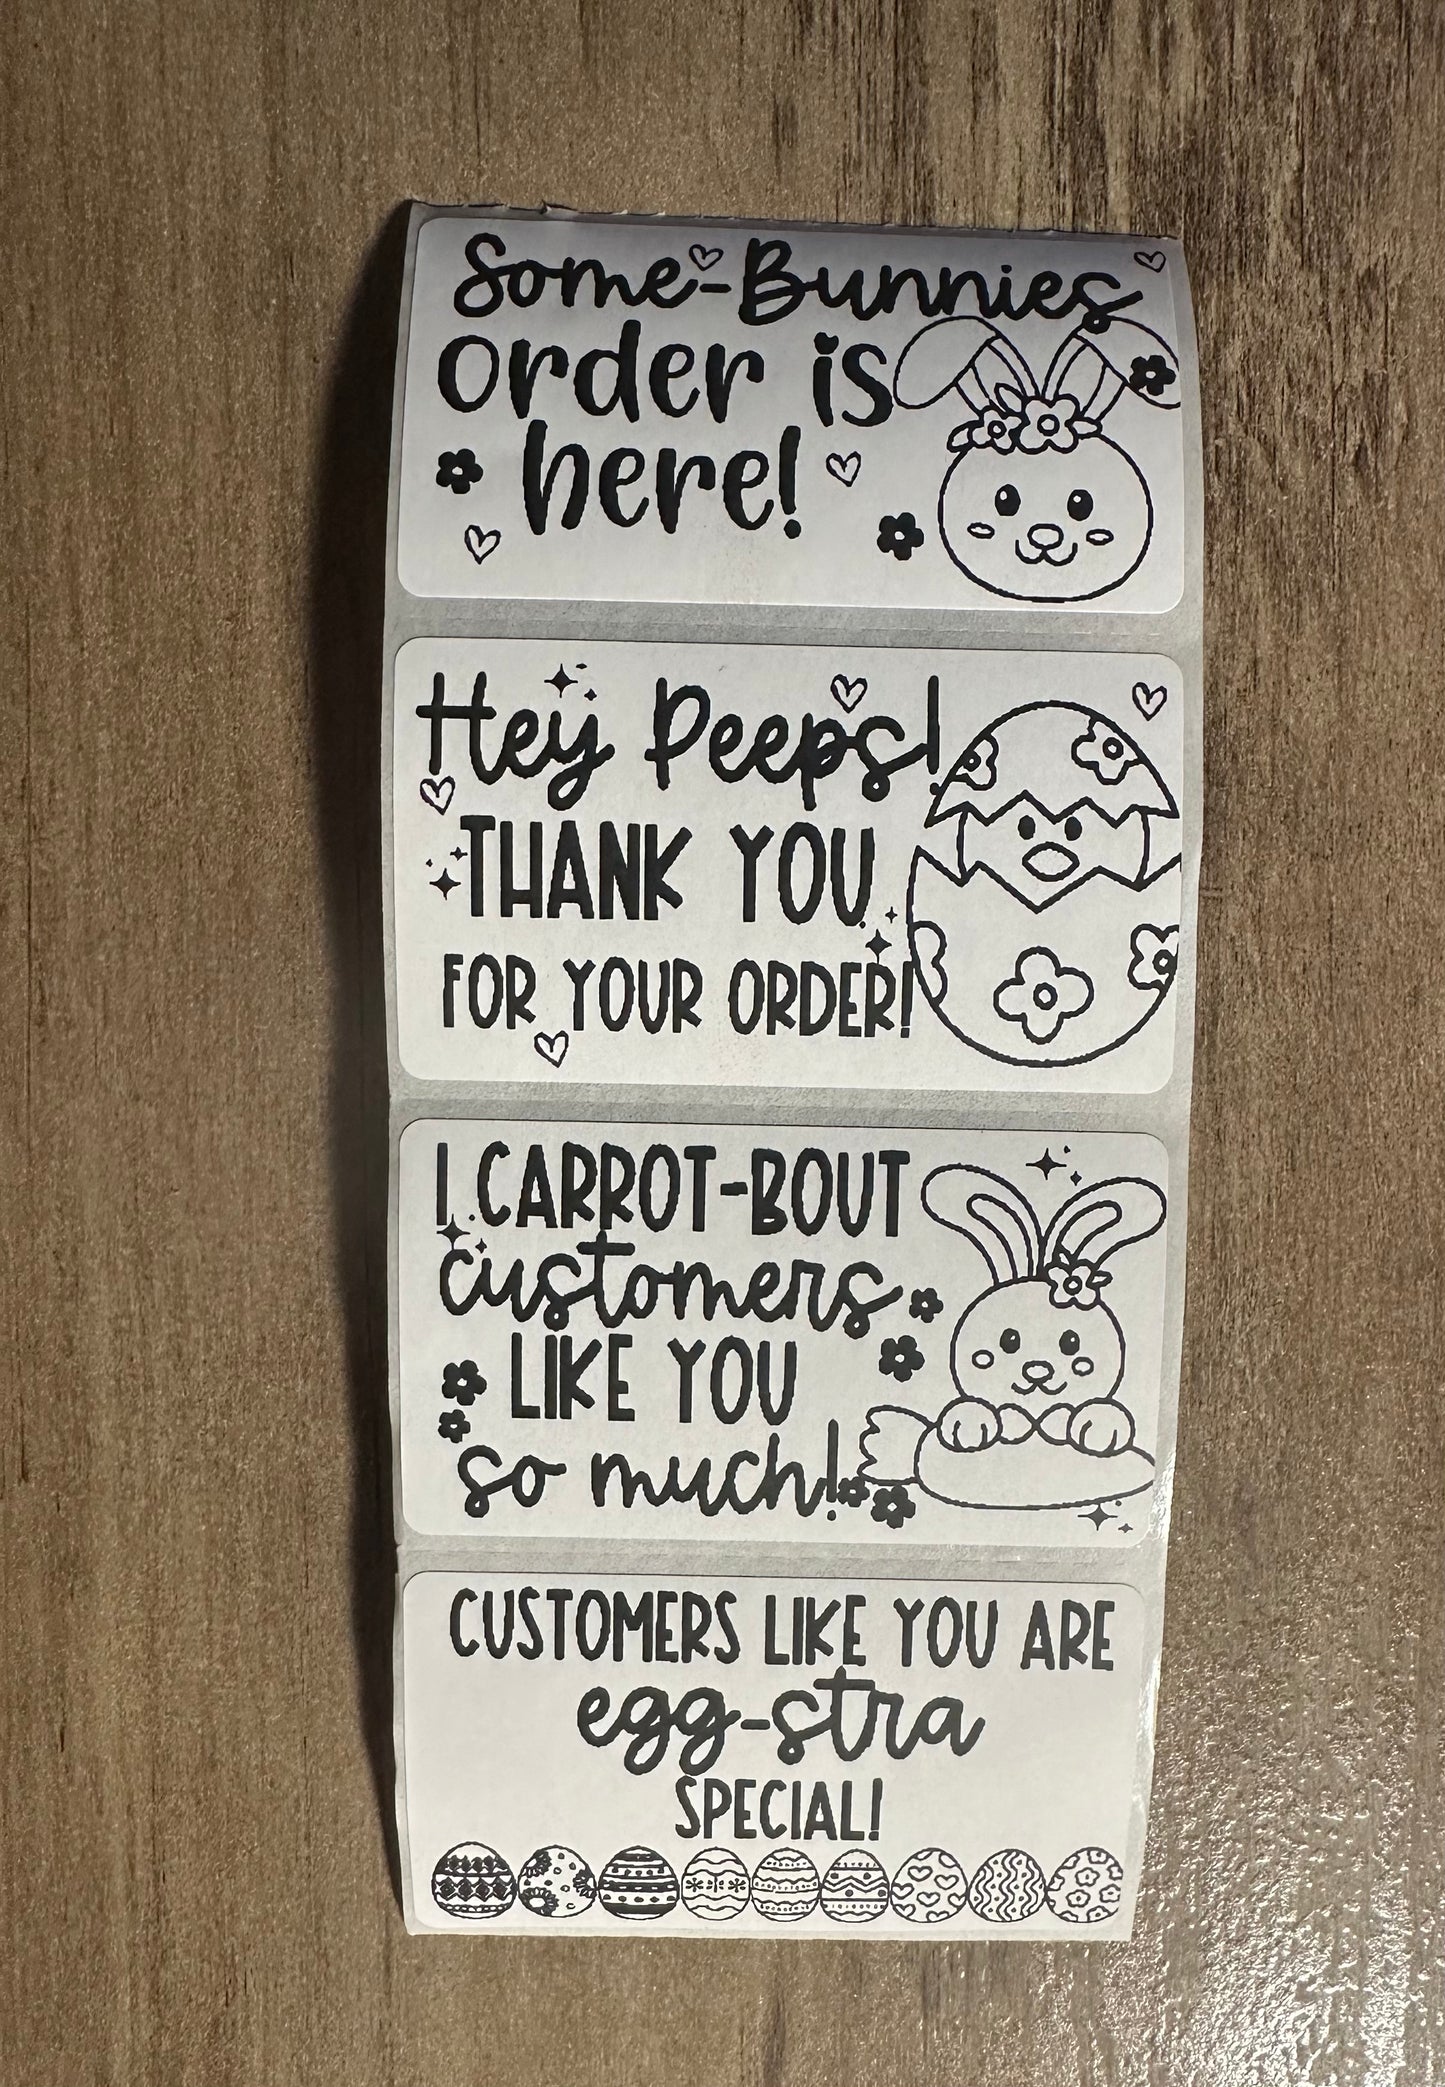 Some-Bunnies
order is
here!
Hey Peeps!
THANK YOU
FOR YOUR ORDER!
I CARROT-BOUT
customers
LIKE YOU
so much!
CUSTOMERS LIKE YOU ARE
egg-stra
SPECIAL!